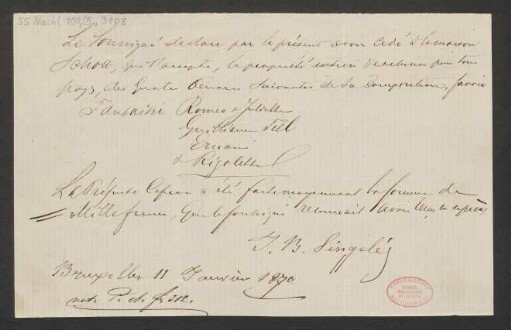 55 Nachl 100/B, 3198
Le Soussigné déclare par le présent avoir cédé à la maison
Schott, qui l'accepte, la propriété entière pour tous
pays, des quatre Oeuvres suivantes de sa Composition, savoir
Fantaisies Romeo & Juliette
Guillaume Tell
Ernani
& Rigoletto
La Présente Cession a été faite moyennant la somme de
Mille francs, que le soussigné reconnait avoir reçu
J. B. Singelée
Bruxelles 11 Janvier 1870